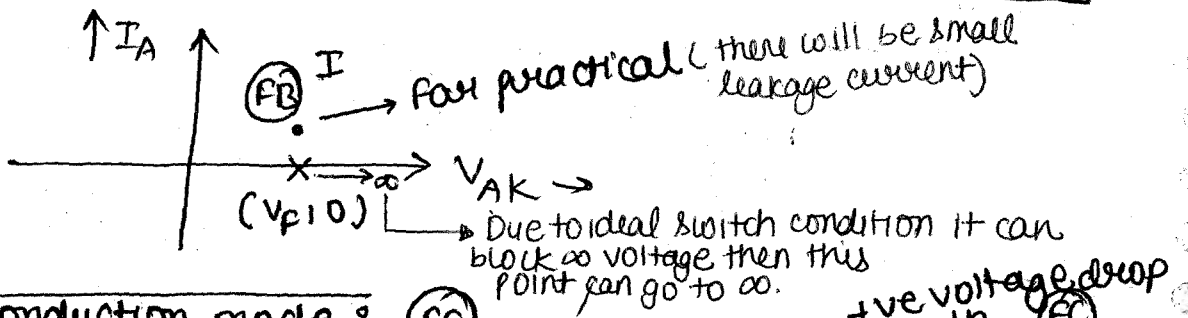 ↑ I_A
(FB) I
→ For practical (there will be small
leakage current)
× → ∞
V_AK →
(V_F, 0)
→ Due to ideal switch condition it can
block ∞ voltage then this
point can go to ∞.
+ve voltage drop
onduction mode :
in (FC)